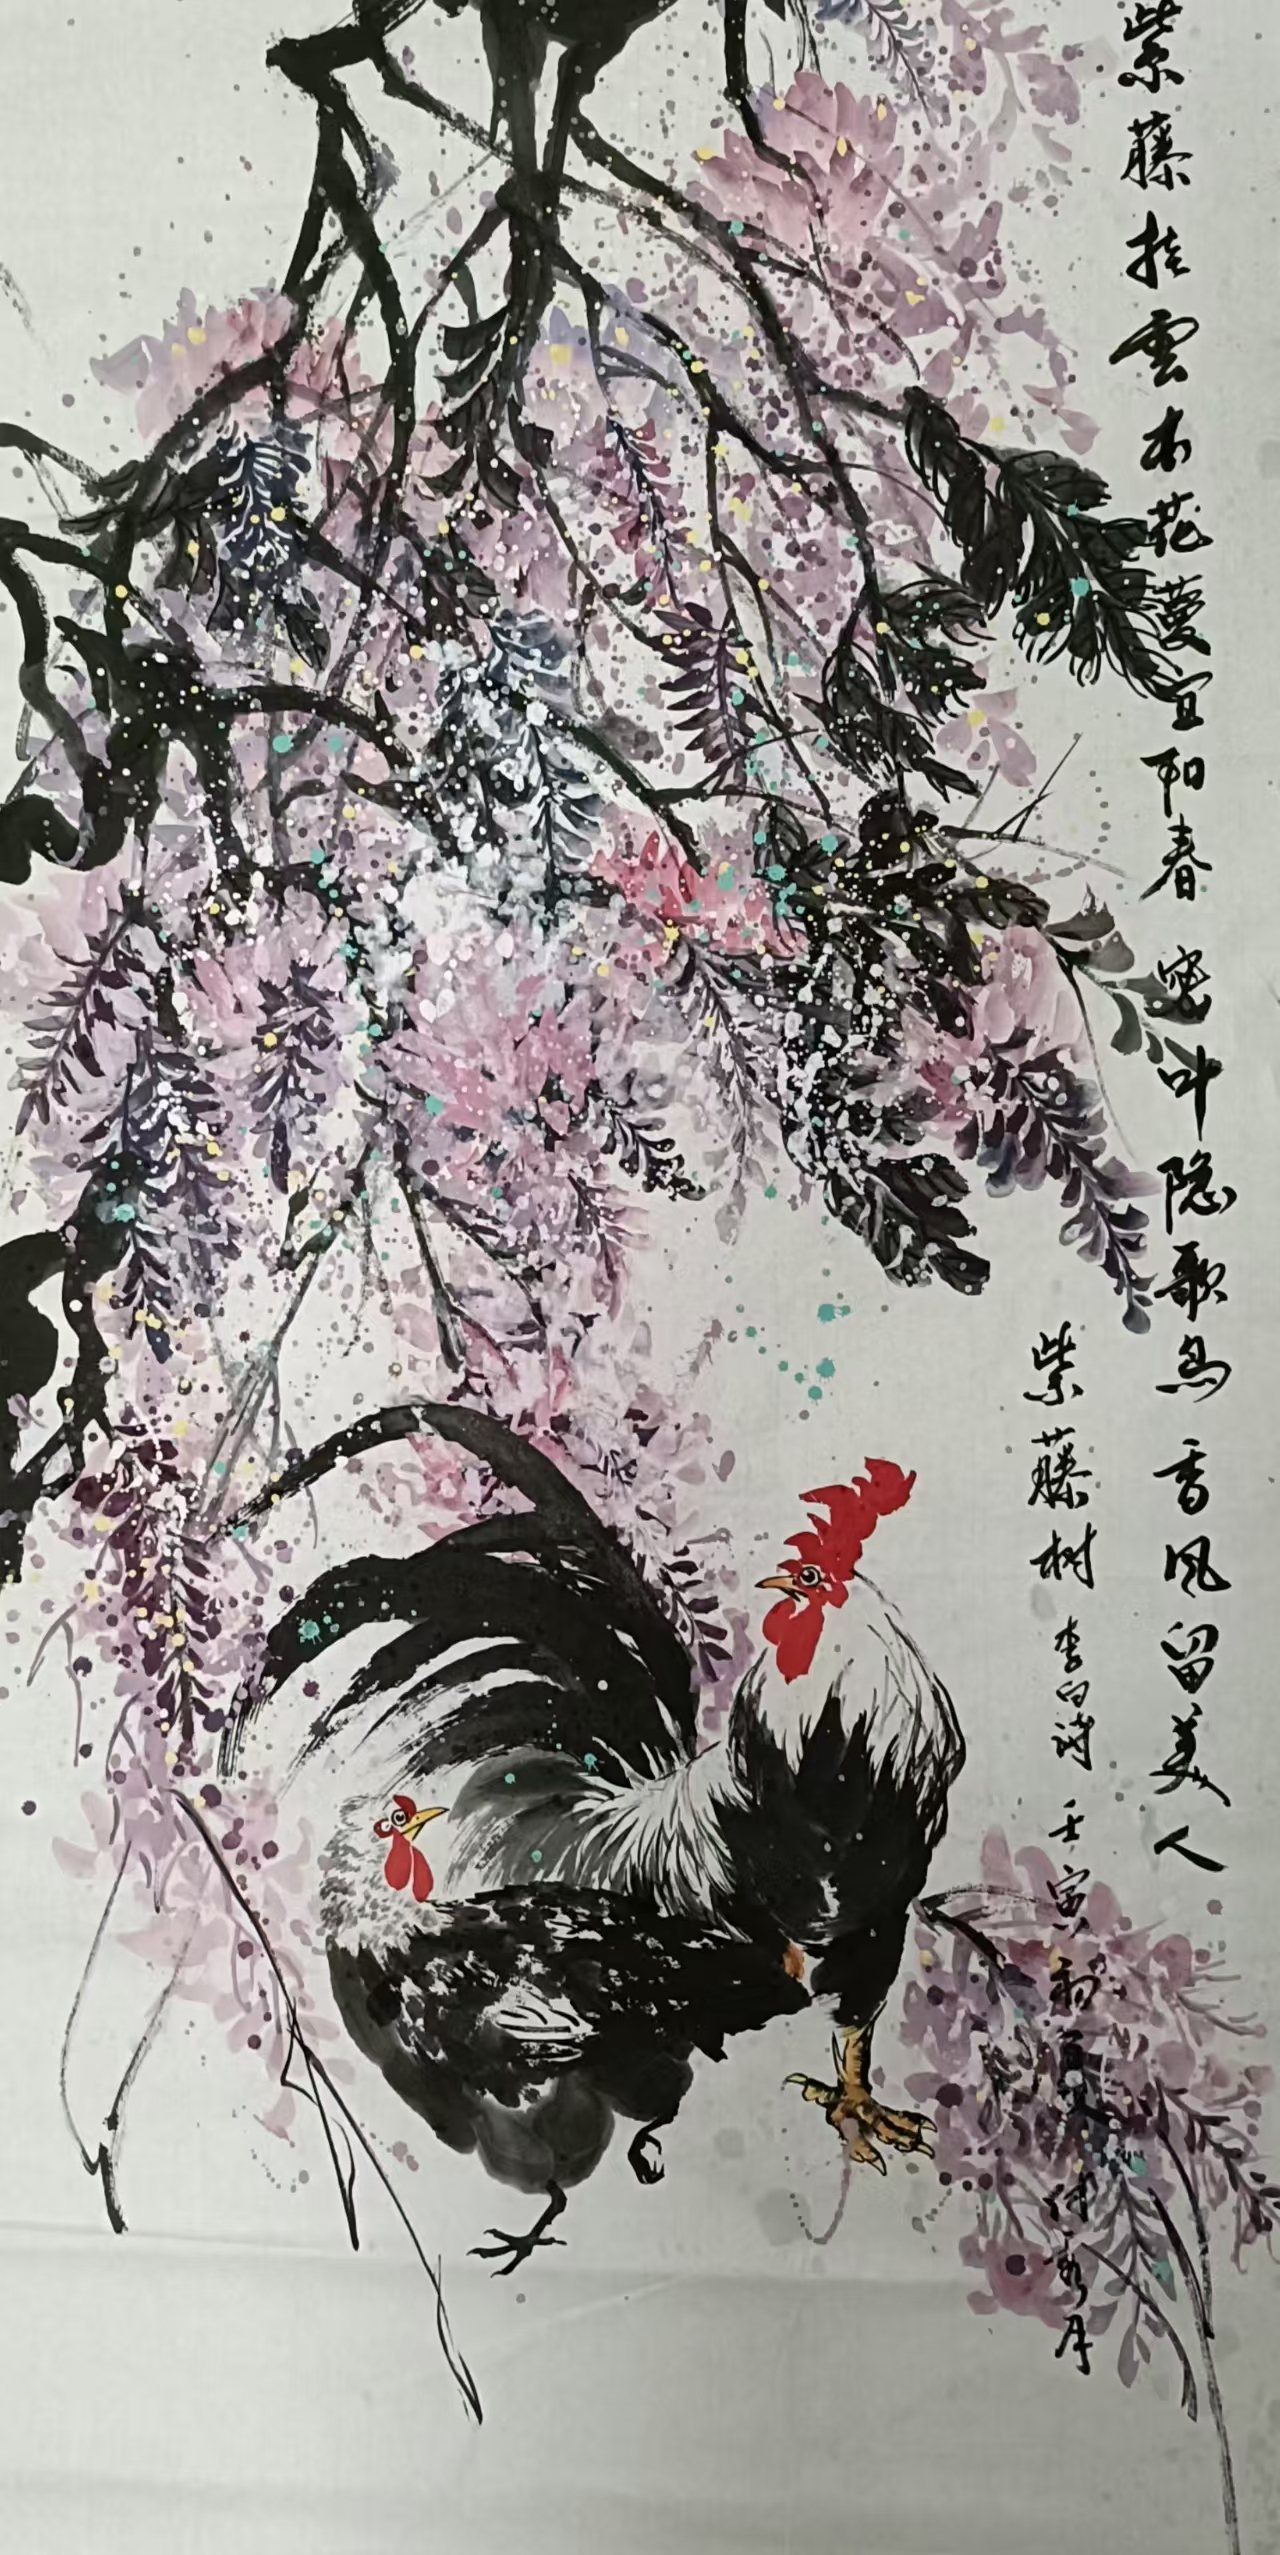 紫藤挂雲木花蔓宜阳春密叶隐歌鸟香风留美人
紫藤树李白诗壬寅初夏付秀月